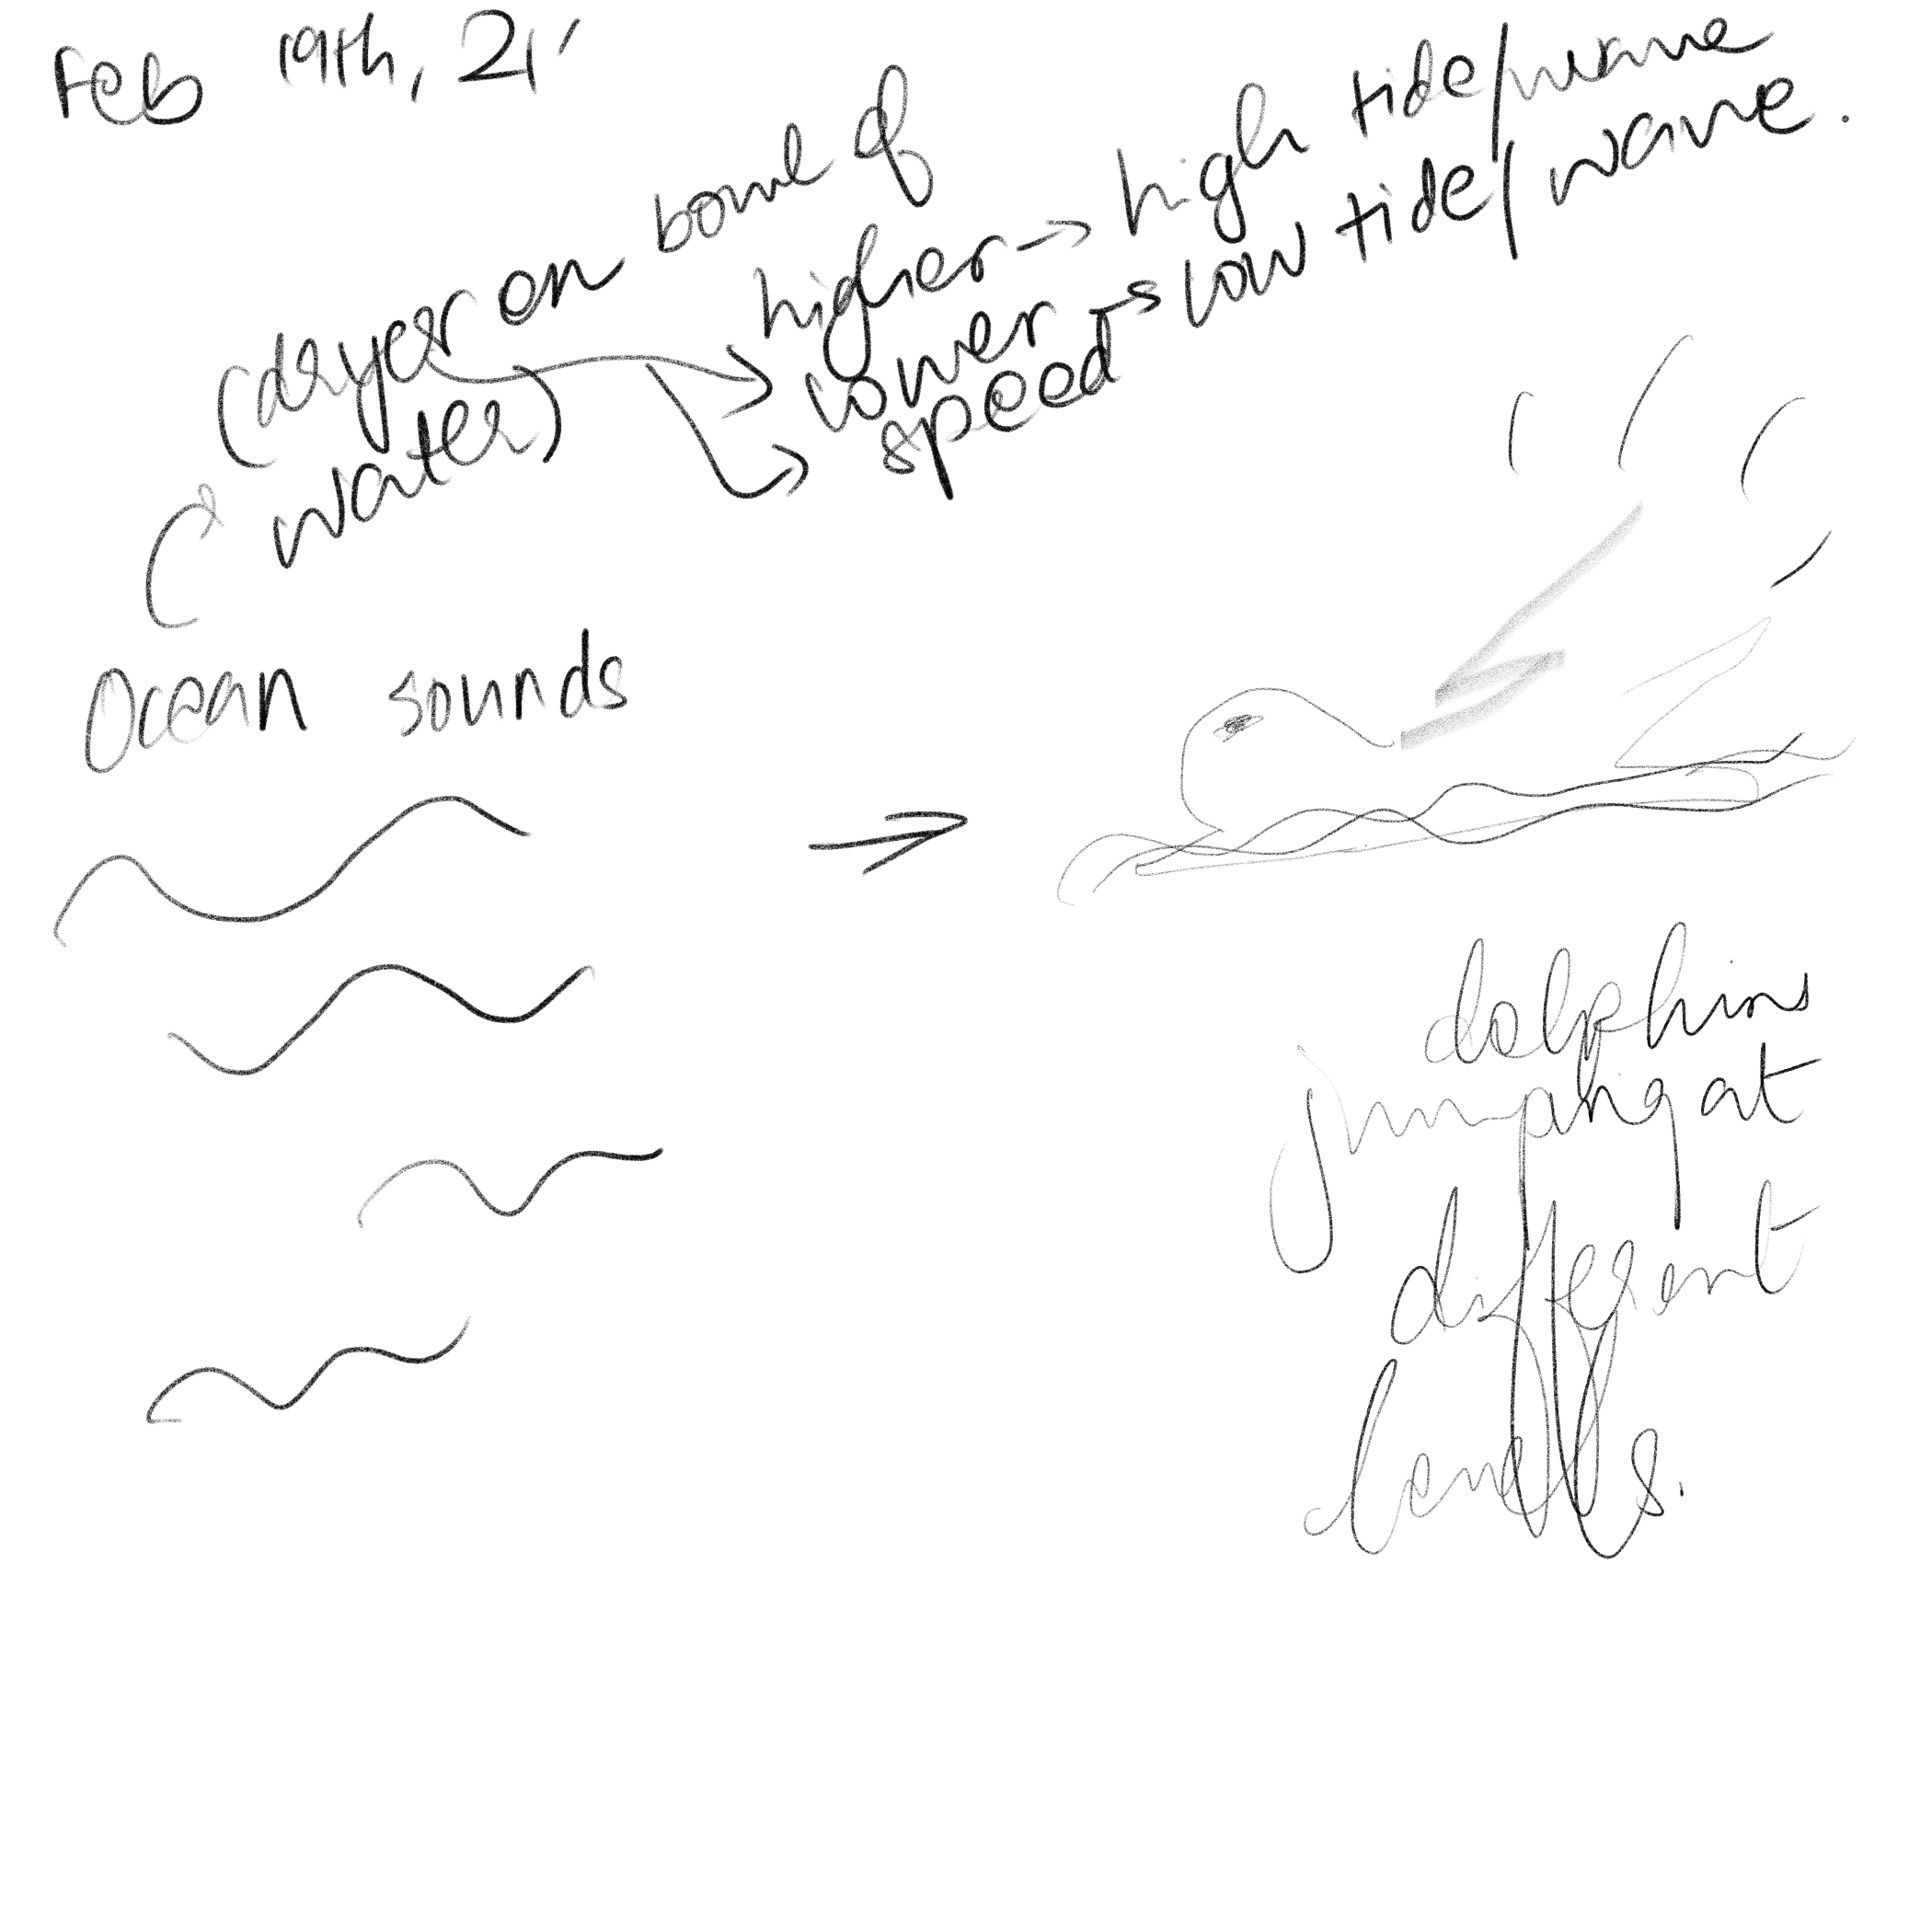 Feb 19th, 21'
(dryer on bowl of
water)
higher → high tide/wave
lower → low tide/wave.
speed
Ocean sounds
dolphins
jumping at
different
levels.